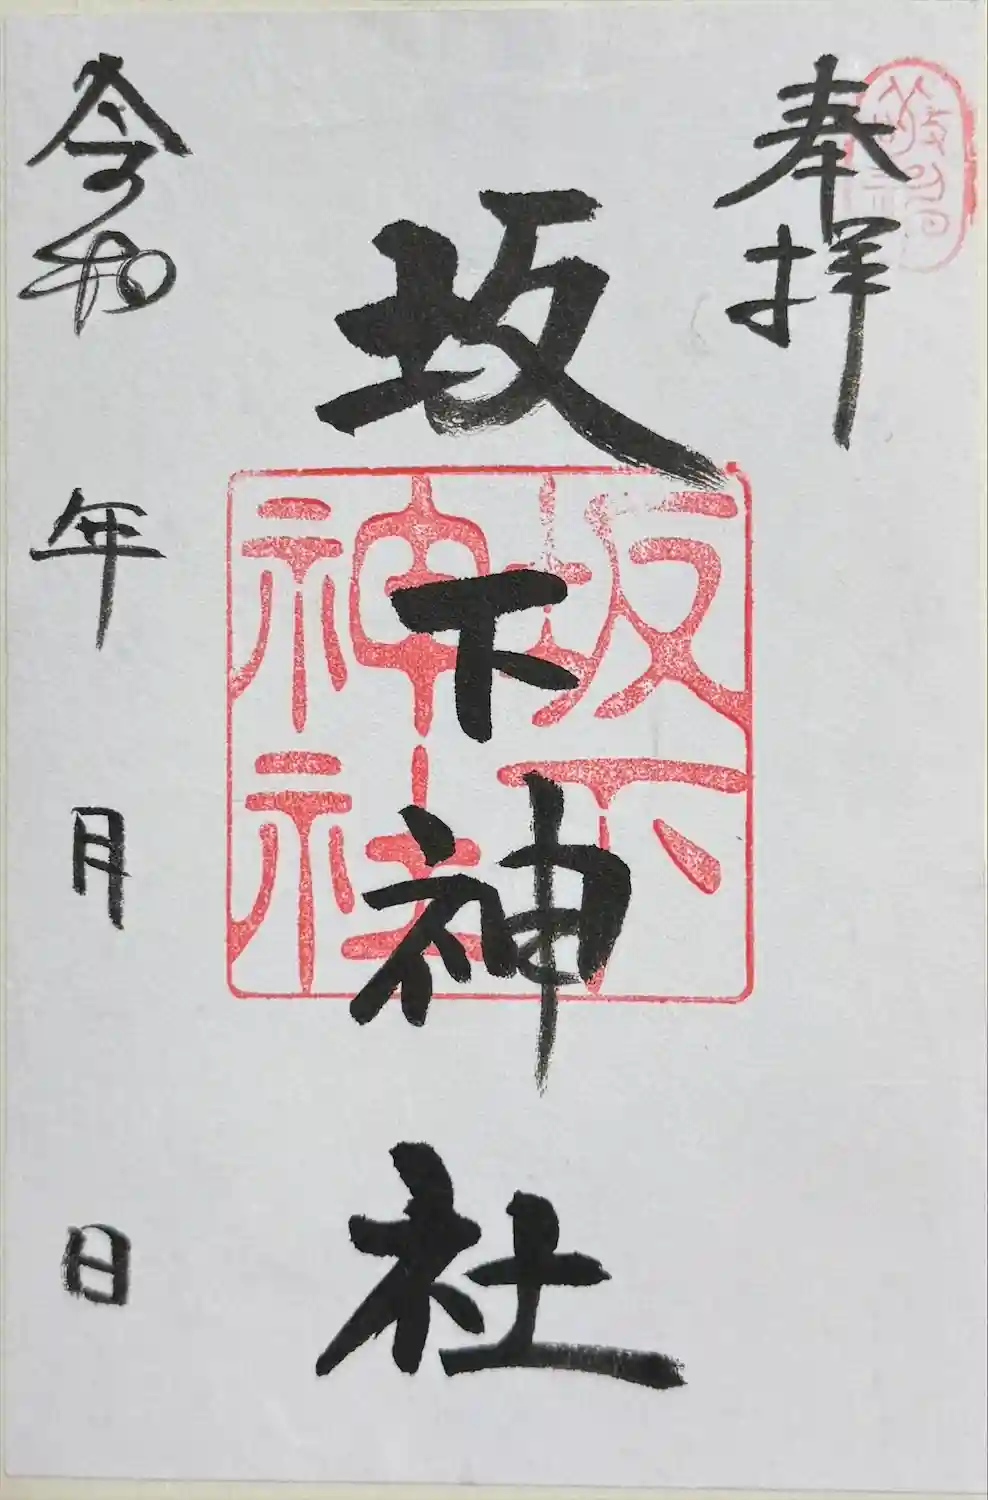 奉拝
坂下神社
坂下神社
令和 年 月 日